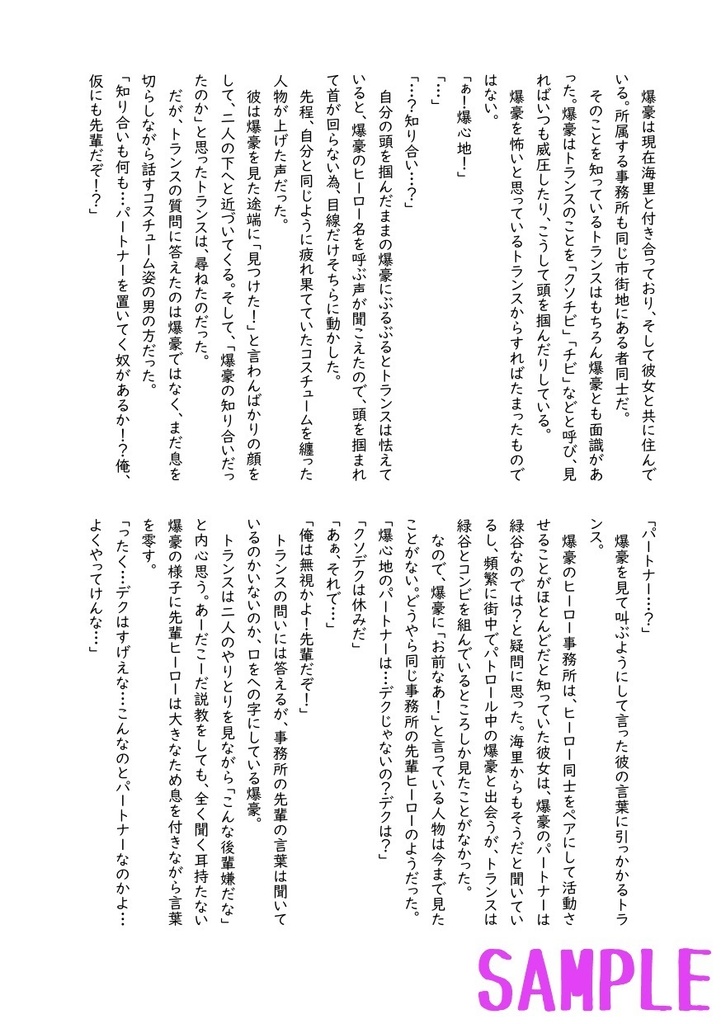 爆豪は現在海里と付き合っており、そして彼女と共に住んで
いる。所属する事務所も同じ市街地にある者同士だ。
　そのことを知っているトランスはもちろん爆豪とも面識があ
った。爆豪はトランスのことを「クソチビ」「チビ」などと呼び、見
ればいつも威圧したり、こうして頭を掴んだりしている。
　爆豪を怖いと思っているトランスからすればたまったもので
はない。
「ぁ！爆心地！」
「…」
「…？知り合い…？」
　自分の頭を掴んだままの爆豪にぶるぶるとトランスは怯えて
いると、爆豪のヒーロー名を呼ぶ声が聞こえたので、頭を掴まれ
て首が回らない為、目線だけそちらに動かした。
　先程、自分と同じように疲れ果てていたコスチュームを纏った
人物が上げた声だった。
　彼は爆豪を見た途端に「見つけた！」と言わんばかりの顔を
して、二人の下へと近づいてくる。そして、「爆豪の知り合いだっ
たのか」と思ったトランスは、尋ねたのだった。
　だが、トランスの質問に答えたのは爆豪ではなく、まだ息を
切らしながら話すコスチューム姿の男の方だった。
「知り合いも何も…パートナーを置いてく奴があるか！？俺、
仮にも先輩だぞ！？」
「パートナー…？」
　爆豪を見て叫ぶようにして言った彼の言葉に引っかかるトラ
ンス。
　爆豪のヒーロー事務所は、ヒーロー同士をペアにして活動さ
せることがほとんどだと知っていた彼女は、爆豪のパートナーは
緑谷なのでは？と疑問に思った。海里からもそうだと聞いてい
るし、頻繁に街中でパトロール中の爆豪と出会うが、トランスは
緑谷とコンビを組んでいるところしか見たことがなかった。
　なので、爆豪に「お前なあ！」と言っている人物は今まで見た
ことがない。どうやら同じ事務所の先輩ヒーローのようだった。
「爆心地のパートナーは…デクじゃないの？デクは？」
「クソデクは休みだ」
「あぁ、それで…」
「俺は無視かよ！先輩だぞ！」
　トランスの問いには答えるが、事務所の先輩の言葉は聞いて
いるのかいないのか、口をへの字にしている爆豪。
　トランスは二人のやりとりを見ながら「こんな後輩嫌だな」
と内心思う。あーだこーだ説教をしても、全く聞く耳持たない
爆豪の様子に先輩ヒーローは大きなため息を付きながら言葉
を零す。
「ったく…デクはすげえな…こんなのとパートナーなのかよ…
よくやってけんな…」
SAMPLE